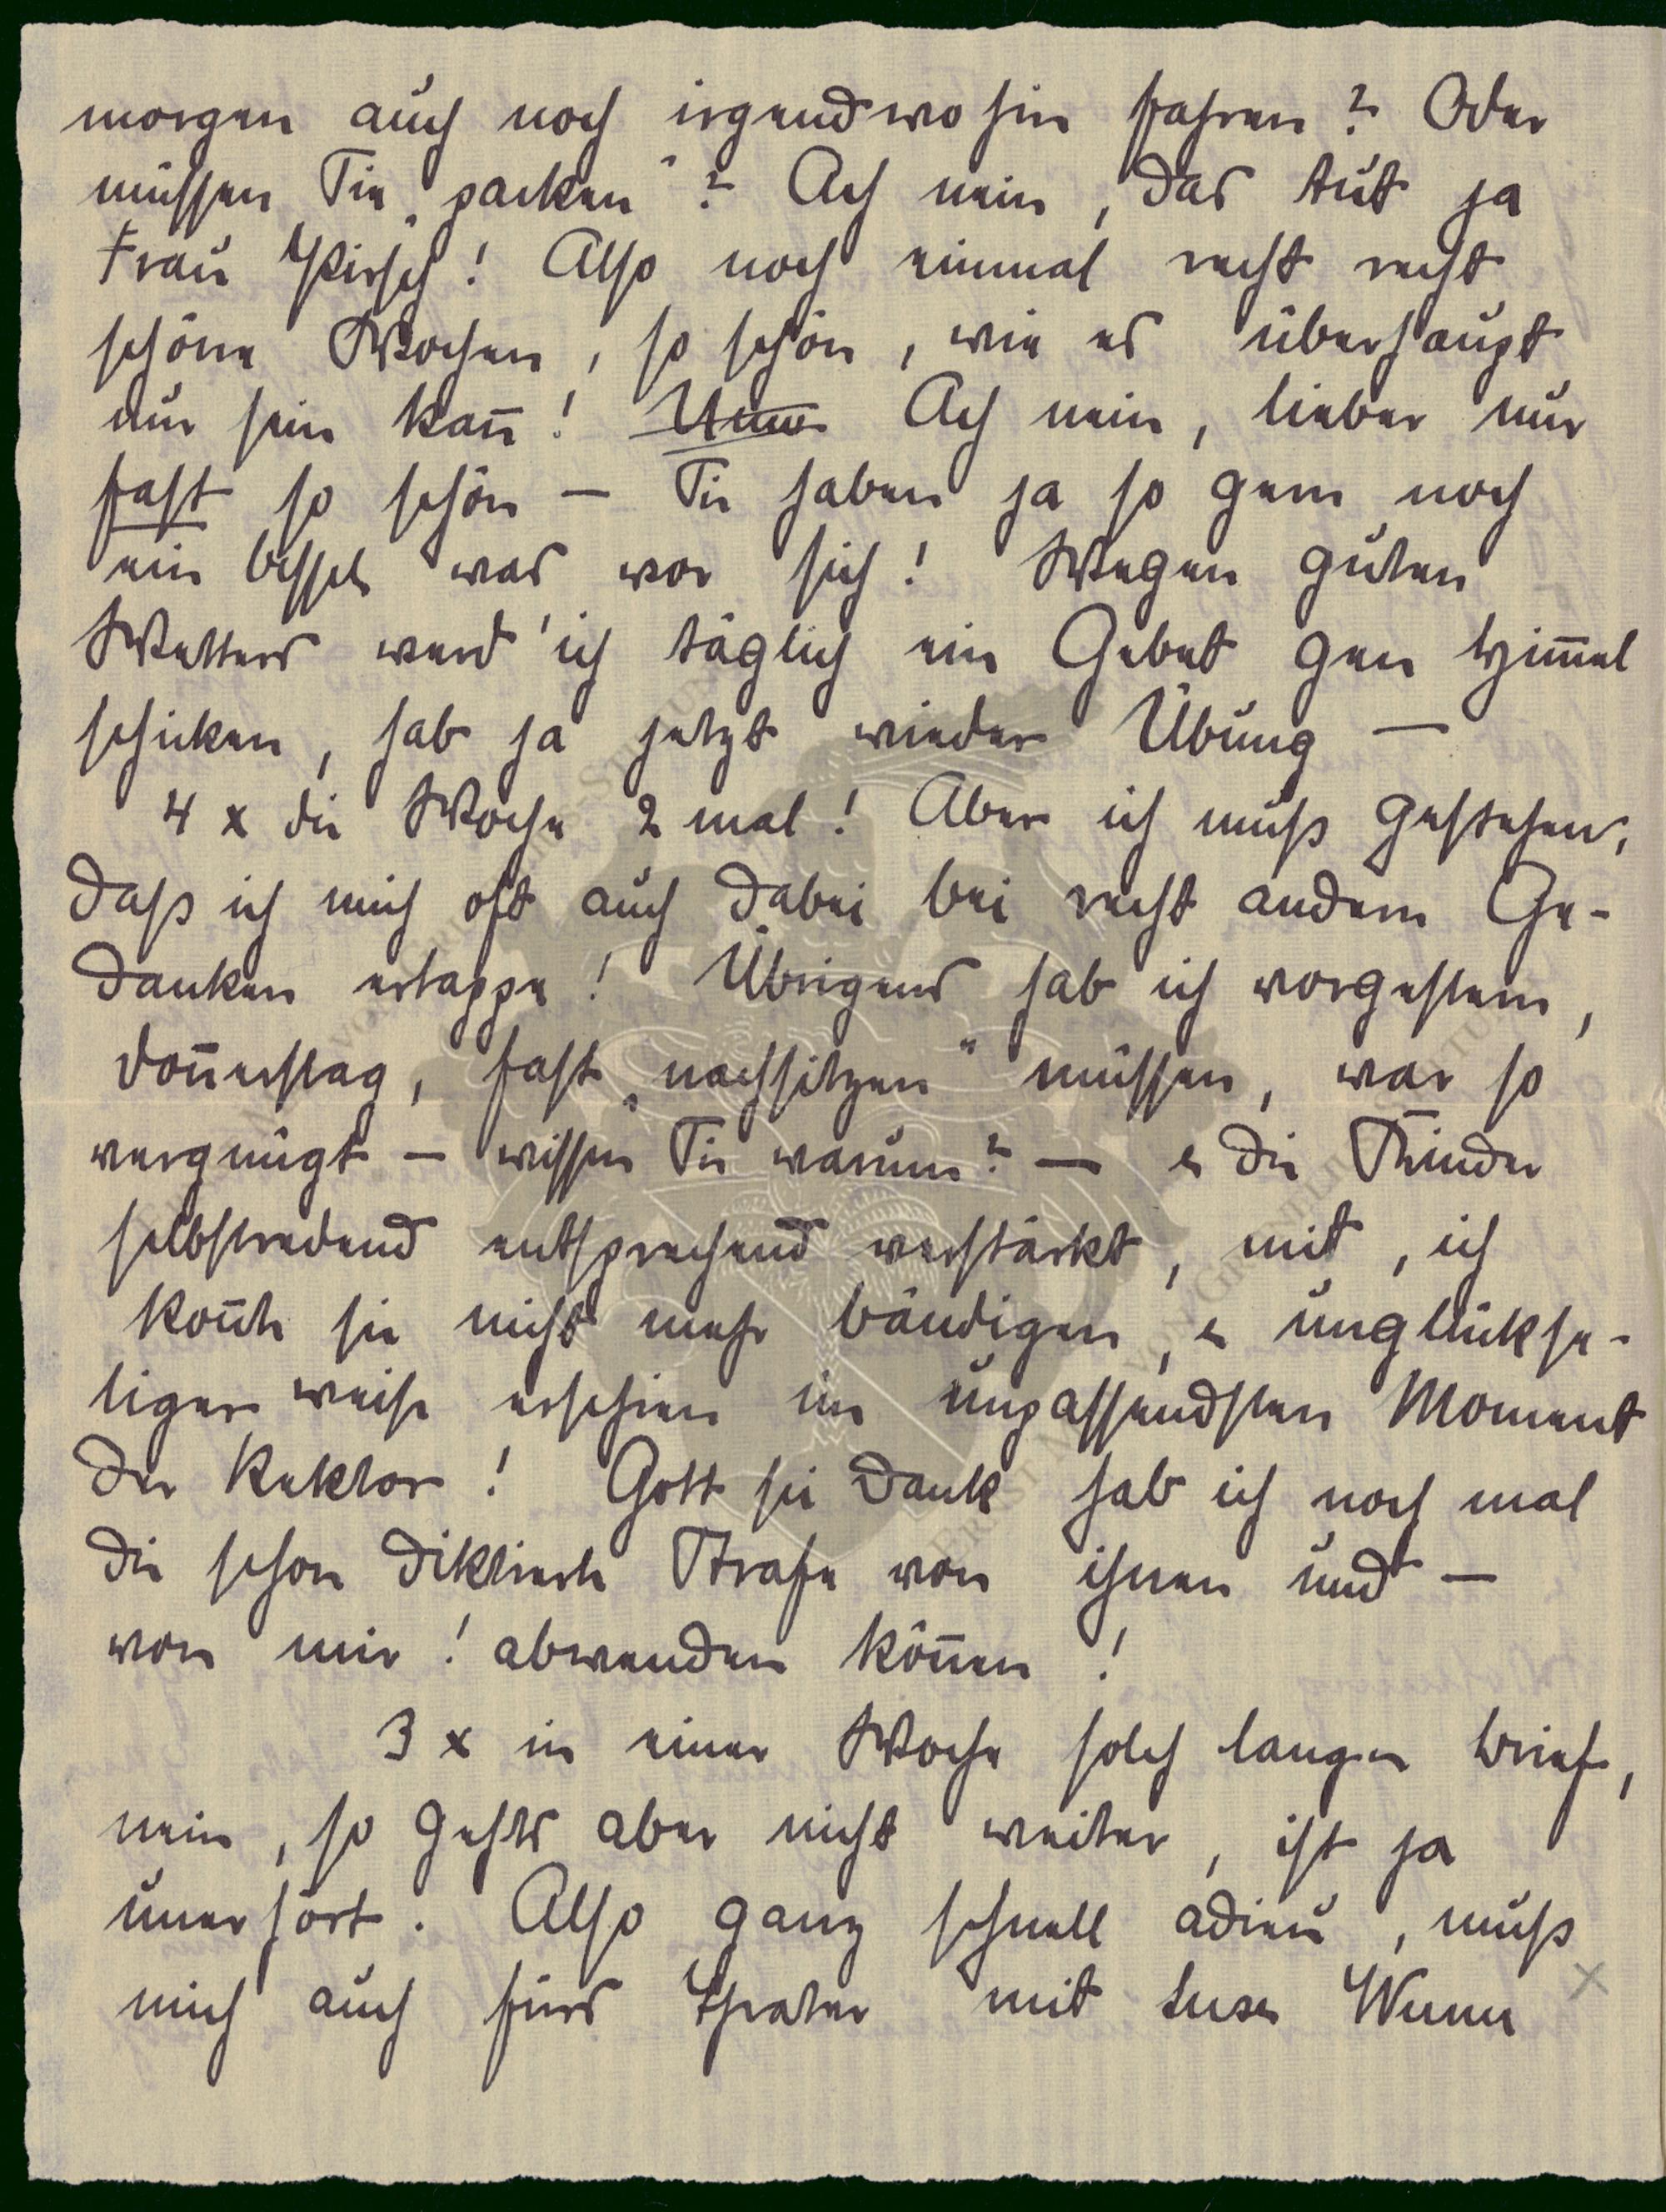 morgen auch noch irgendwo hin fahren? Oder
müssen Sie „packen“? Ach nein, das tut ja
Frau Hirsch! Also noch einmal recht recht
schöne Wochen, so schön, wie es überhaupt
nur sein kann̄! Ach nein, lieber nur
fast so schön – Sie haben ja so gern noch
ein bissel was vor sich! Wegen guten
Wetters werd' ich täglich ein Gebet gen Him̄el
schicken, hab ja jetzt wieder Übung –
4 x die Woche 2 mal! Aber ich muß gestehen,
daß ich mich oft auch dabei bei recht andern Ge-
danken ertappe! Übrigens hab ich vorgestern,
Don̄erstag, fast „nachsitzen“ müssen, war so
vergnügt – wissen Sie warum? – u die Kinder
selbstredend entsprechend verstärkt, mit, ich
kon̄te sie nicht mehr bändigen, u unglückse-
liger weise erschien im unpassendsten Moment
der Rektor! Gott sei Dank hab ich noch mal
die schon diktierte Strafe von ihnen und –
von mir! abwenden kön̄en!
3 x in einer Woche solch langen Brief,
nein, so gehts aber nicht weiter, ist ja
unerhört. Also ganz schnell adieu, muß
mich auch fürs Theater mit